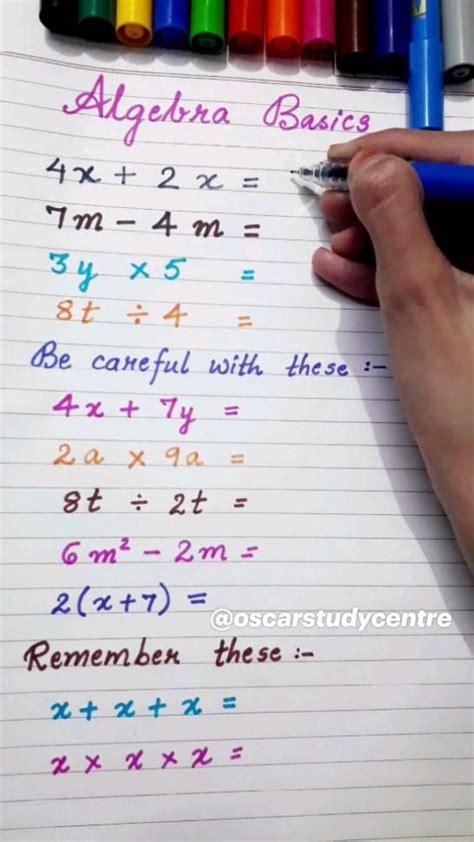 Algebra Basics
4x + 2x =
7m - 4m =
3y × 5 =
8t ÷ 4 =
Be careful with these :-
4x + 7y =
2a × 9a =
8t ÷ 2t =
6m² - 2m =
2(x+7) =
@oscarstudycentre
Remember these :-
x + x + x =
x × x × x =